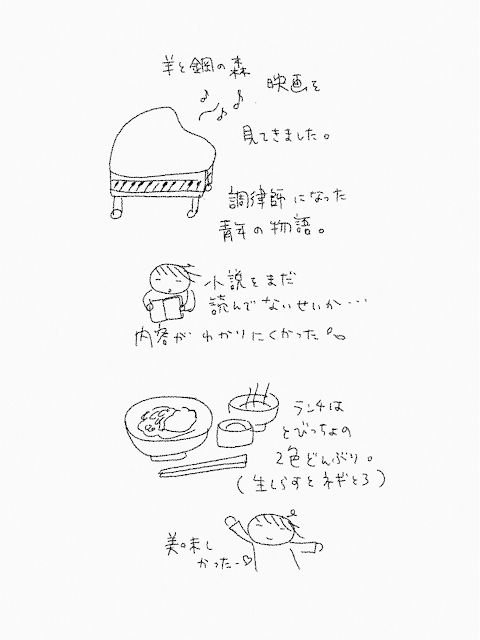 羊と鋼の森
映画を
見てきました。
調律師になった
青年の物語。
小説をまだ
読んでないせいか…
内容がわかりにくかった。
ランチは
とびっちょの
2色どんぶり。
(生しらすとネギとろ)
美味し
かったー♡